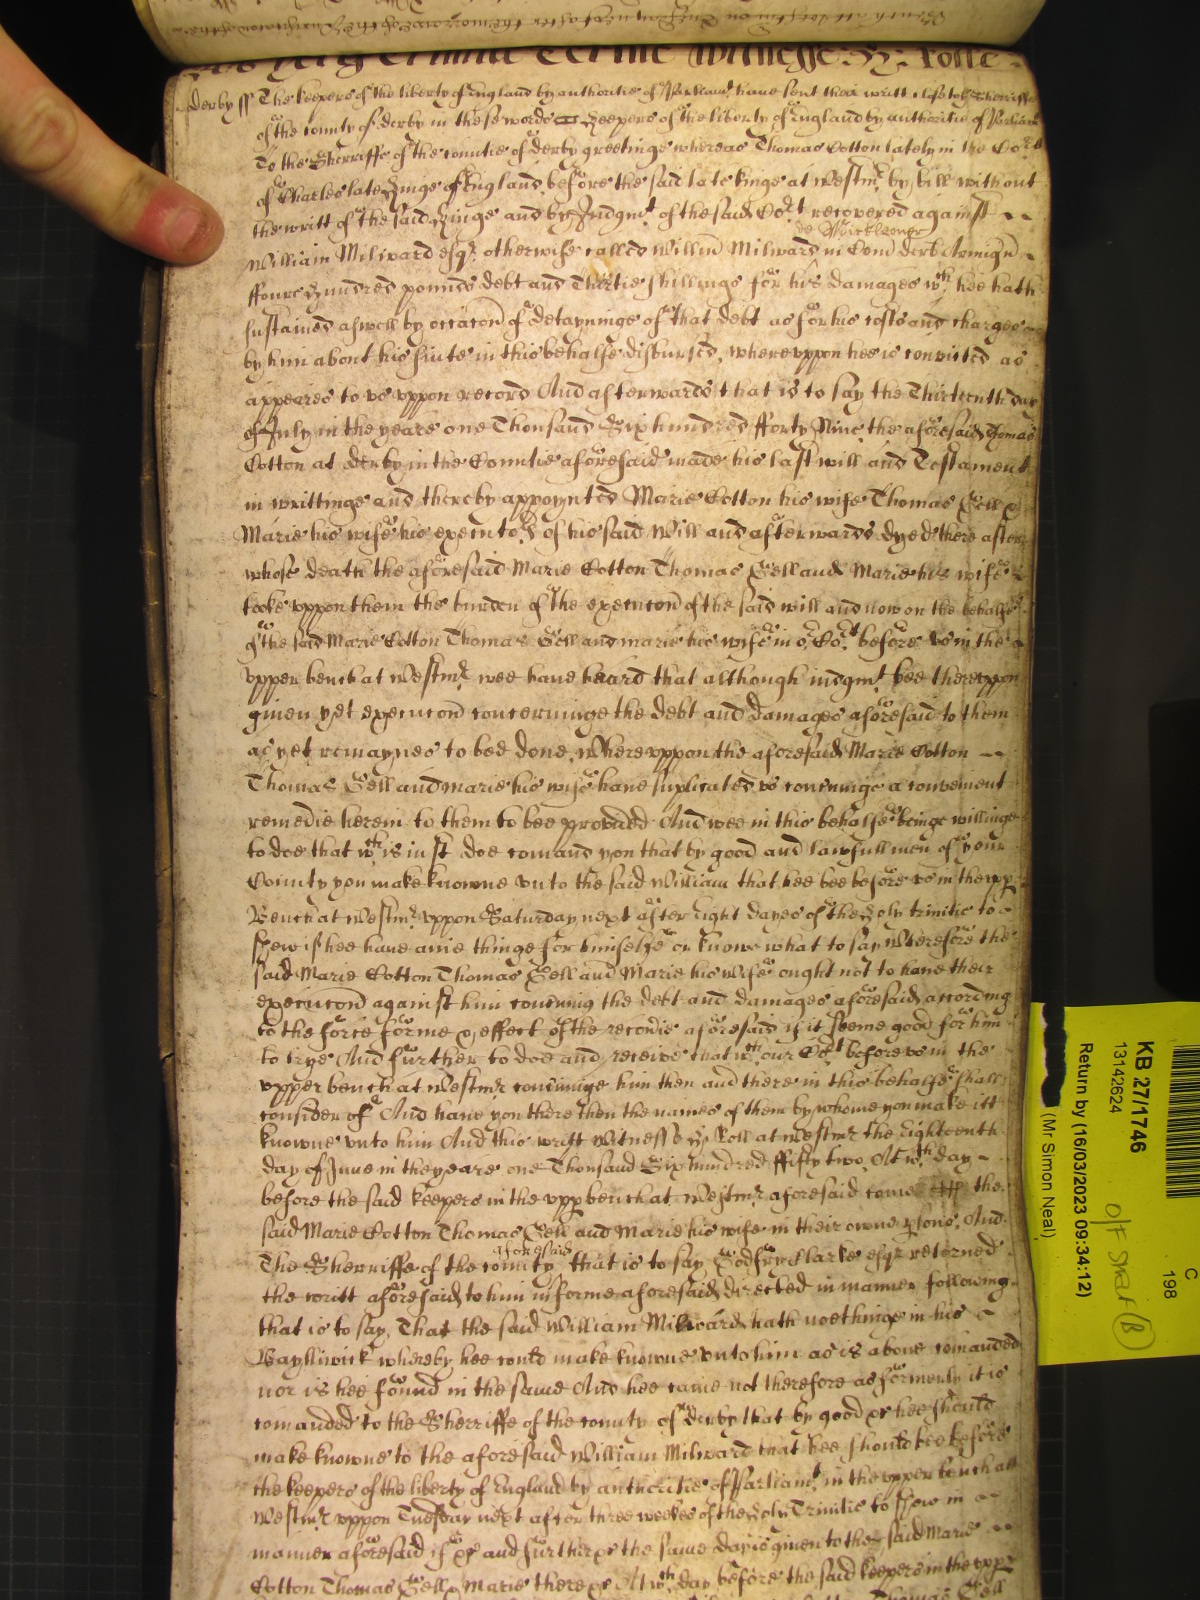 Trinitie Terme Witnesse H: Rolle
derby ss The keepers of the liberty of England by authoritie of Parliamt have sent their writt close to the Sherriffe
of the county of derby in these words Keepers of the liberty of England by authoritie of Parliamt
To the Sherriffe of the countie of derby greetinge whereas Thomas Cotton lately in the Cort
of Charles late Kinge of England before the said late kinge at Westmr by bill without
the writt of the said Kinge and by Judgmt of the said Cort recovered against
de
William Milward esqr otherwise called Willm Milward in Com derb Armign
ffoure Hundred pounds debt and Thirtie shillings for his damages wch hee hath
sustained aswell by occacon of detayninge of that debt as for his costs and charges
by him about his suite in this behalfe disbursed, whereuppon hee is convicted as
appeares to us uppon record And afterwards that is to say the Thirteenth day
of July in the yeare one Thousand Six hundred fforty Nine the aforesaid Thomas
Cotton at derby in the Countie aforesaid made his last will and Testament
in writtinge and thereby appoynted Marie Cotton his wife Thomas Gell &
Marie his wife his executors of his said Will and afterwards dyed there after
whose death the aforesaid Marie Cotton Thomas Gell and Marie his wife
tooke uppon them the burden of the execucon of the said will and now on the behalfe
of the said Marie Cotton Thomas Gell and marie his wife in or Cort before us in the
upper bench at Westmr wee have heard that although iudgmt bee thereuppon
given yet execucon concerninge the debt and damages aforesaid to them
as yet remaynes to bee done, Whereuppon the aforesaid Marie Cotton
Thomas Gell and marie his wife have suplicated us a convenient
remedie herein to them to bee provided And wee in this behalfe beinge willinge
to doe that wch is iust doe comand you that by good and lawfull men of your
County you make knowne unto the said William that hee bee before us in the upp
Bench at Westmr uppon Saturday next after eight dayes of the Holy trinitie to
shew if hee have anie thinge for himselfe or knowe what to say Wherefore the
said Marie Cotton Thomas Gell and Marie his wife ought not to have their
execucon against him concning the debt and damages aforesaid according
to the force forme & effect of the recorde aforesaid if it seeme good for him
to trye And further to doe and receive that wch our Cort before us in the
upper bench at Westmr concninge him then and there in this behalfe shall
consider of And have you there then the names of them by whome you make itt
knowne unto him And this writt Witness H: Roll at Westmr the eighteenth
day of June in the yeare one Thousand Six hundred ffifty two, At wch day
before the said keepers in the upp bench at Westmr aforesaid come the
said Marie Cotton Thomas Gell and Marie his wife in their owne psons, And
aforesaid
The Sherriffe of the county that is to say Godfrey Clarke esqr retorned
the writt aforesaid to him in forme aforesaid directed in manner following
that is to say, That the said William Milward hath noethinge in his
Bayliwick whereby hee could make knowne unto him as is above comanded
nor is hee found in the same And hee came not therefore as formerly it is
comanded to the Sherriffe of the county of derby that by good &c hee should
make knowne to the aforesaid William Milward that hee should bee before
the keepers of the liberty of England by authoritie of Parliamt in the upper bench att
Westmr uppon Tuesday next after three weekes of the Holy Trinitie to shew in
manner aforesaid if &c and further &c the same day is given to the said Marie
Cotton Thomas Gell & Marie there &c At wch day before the said keepers in the upp
Thomas Gell
C
198
KB 27/1746
13142624
O/F Shelf (B)
Return by (16/03/2023 09:34:12)
(Mr Simon Neal)